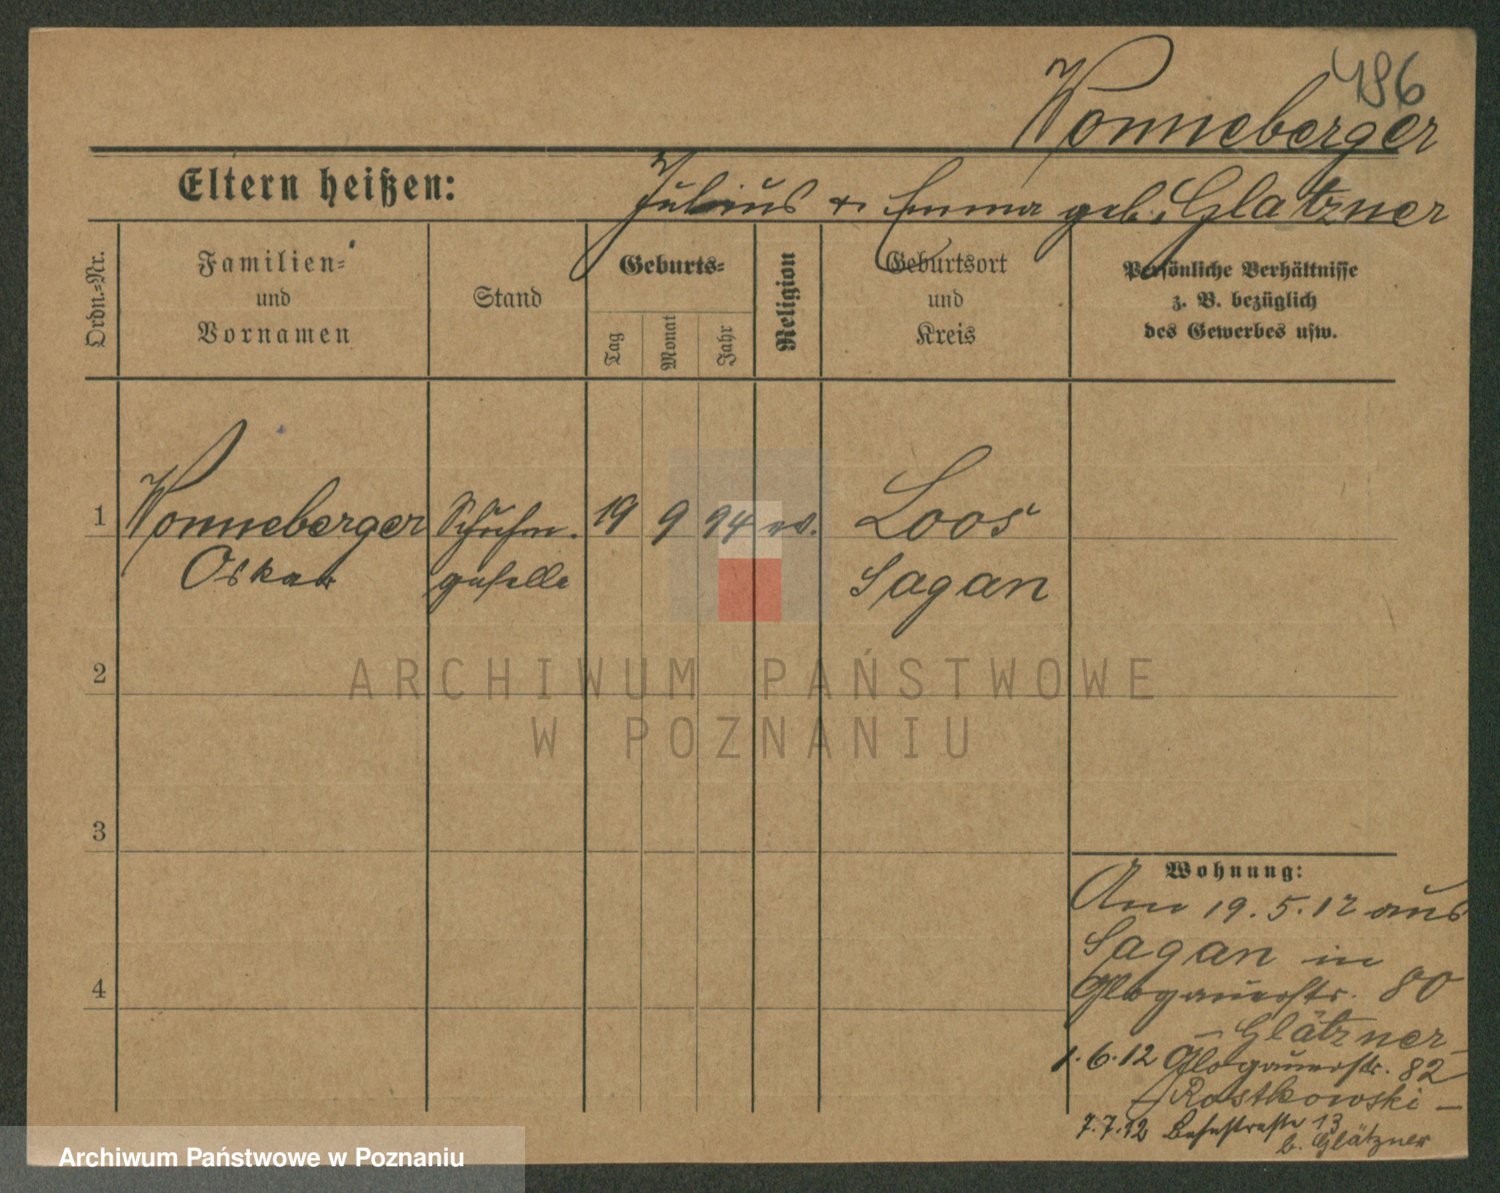 486
Wonneberger
Eltern heißen: Julius & Emma geb. Glatzner
Ordn.-Nr.
Familien-
und
Vornamen
Stand
Geburts-
Tag
Monat
Jahr
Religion
Geburtsort
und
Kreis
Persönliche Verhältnisse
z. B. bezüglich
des Gewerbes usw.
1 Wonneberger Schuhm. 19 9 94 ev. Loos
Oskar geselle Sagan
2
3
4
Wohnung:
Am 19.5.12 aus
Sagan in
Glogauerstr. 80
- Glätzner -
1.6.12 Glogauerstr. 82
- Rostkowski -
7.7.12 13
b. Glätzner
ARCHIWUM PAŃSTWOWE
W POZNANIU
Archiwum Państwowe w Poznaniu